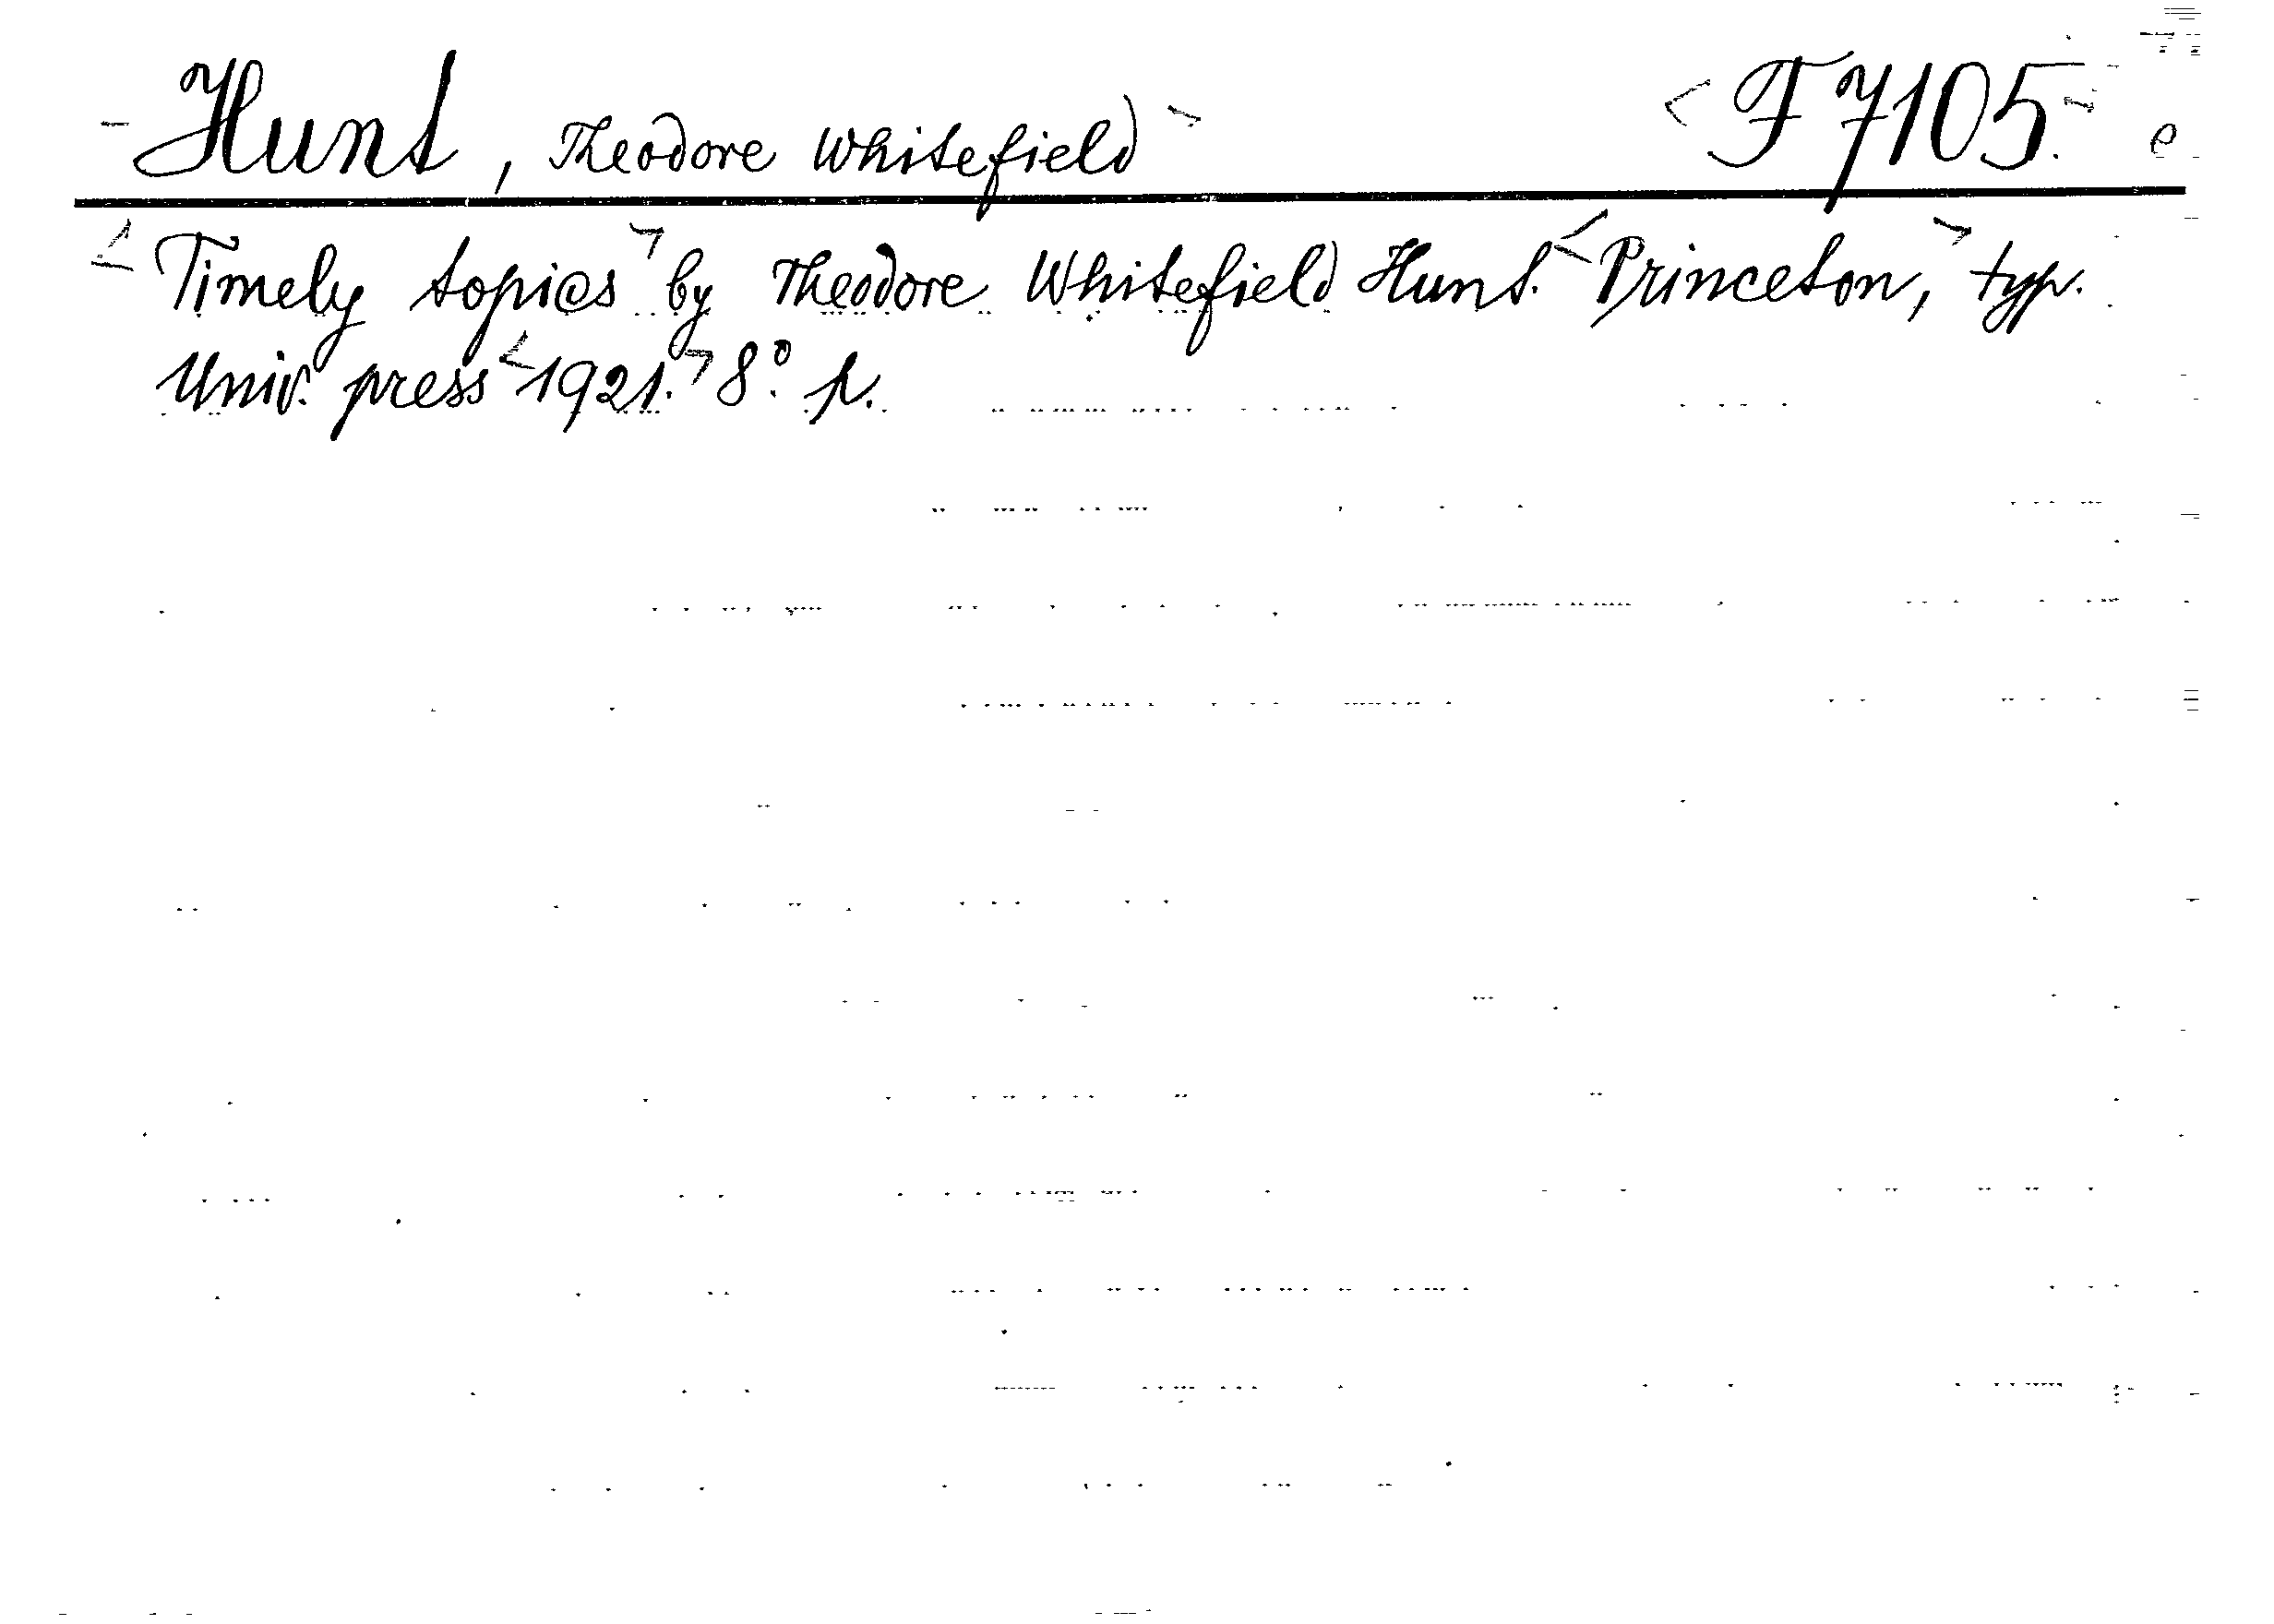 Hunt, Theodore Whitefield F 7105. e
Timely topics by Theodore Whitefield Hunt. Princeton, typ.
Univ. press 1921. 8° p.